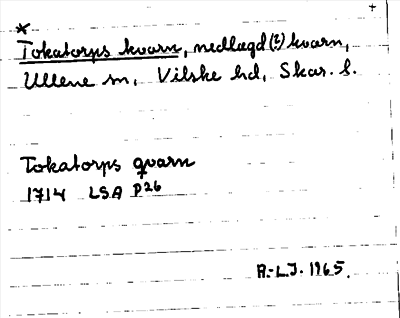 +
*
Tokatorps kvarn, nedlagd (?) kvarn,
Ullene sn, Vilske hd, Skar. l.
Tokatorps qvarn
1714 LSA P26
A.-L.J. 1965.